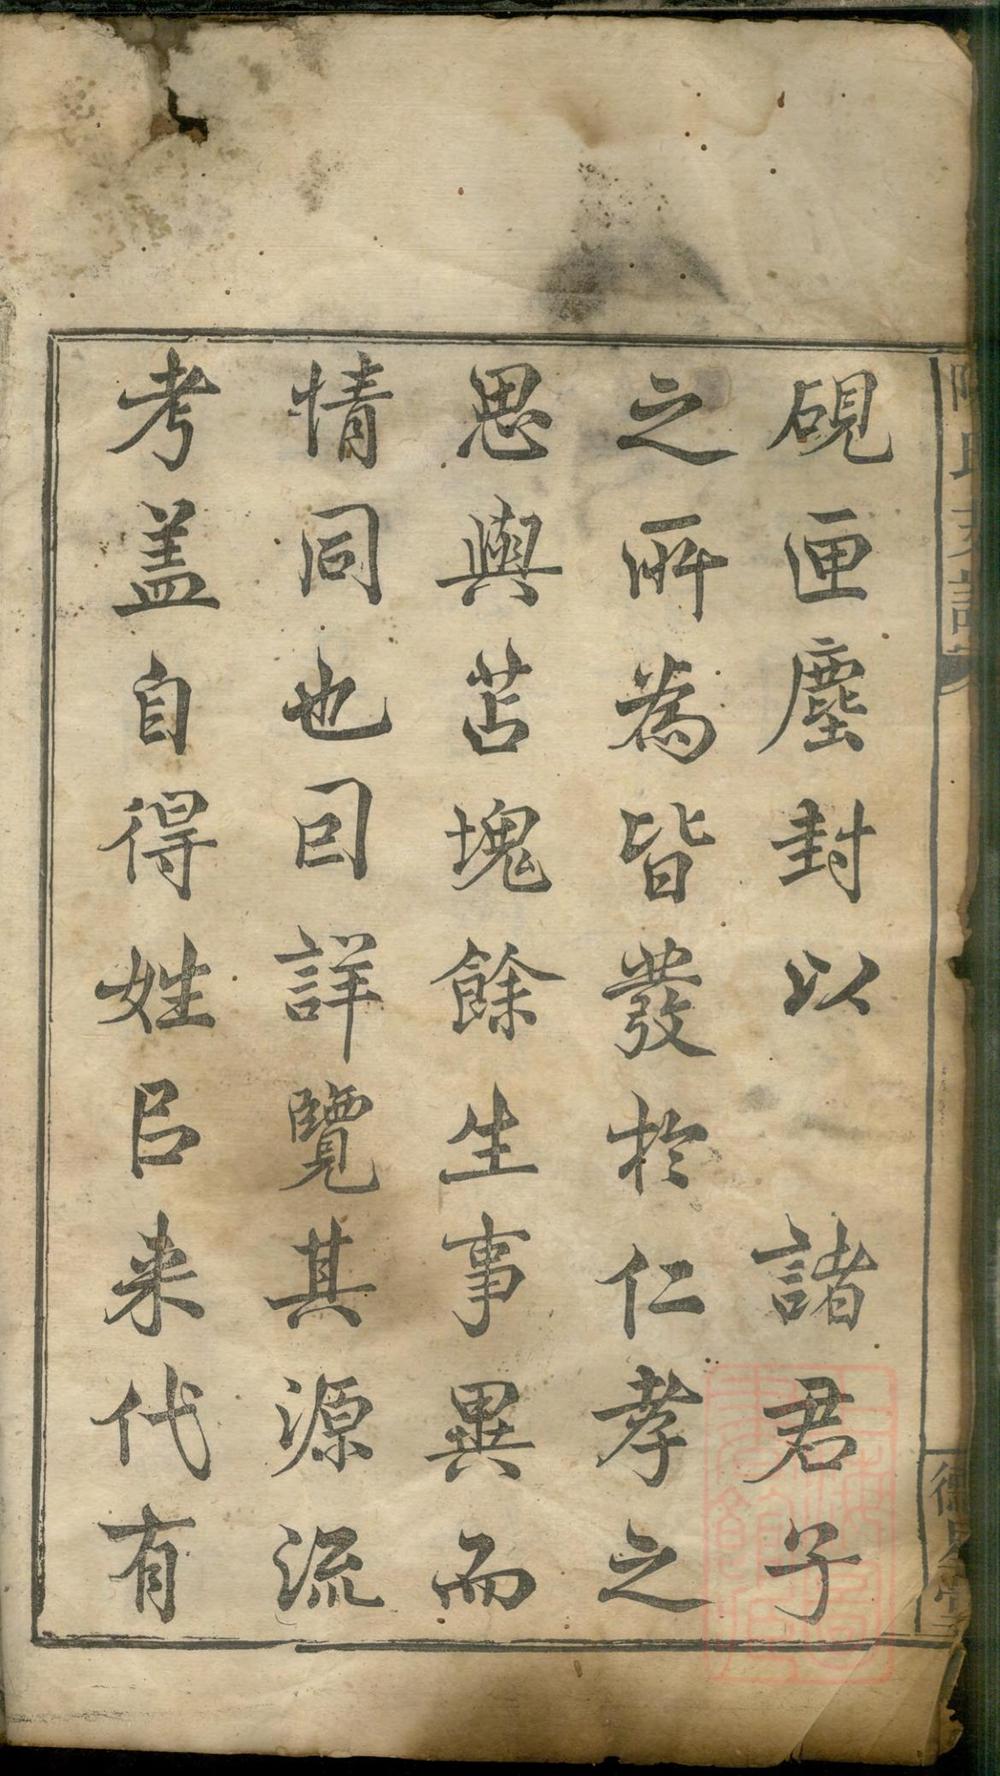 硯匣塵封以　諸君子
之所為皆發於仁孝之
思與苫塊餘生事異而
情同也囙詳覽其源流
考盖自得姓㠯来代有